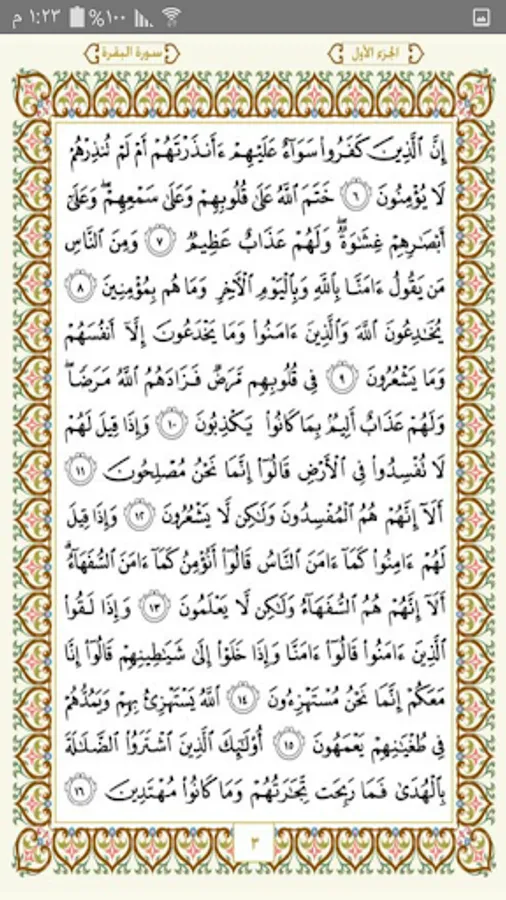 ١:٢٣ م ١٠٠%
الجزء الأول سورة البقرة
إِنَّ ٱلَّذِينَ كَفَرُوا۟ سَوَآءٌ عَلَيْهِمْ ءَأَنذَرْتَهُمْ أَمْ لَمْ تُنذِرْهُمْ
لَا يُؤْمِنُونَ ٦ خَتَمَ ٱللَّهُ عَلَىٰ قُلُوبِهِمْ وَعَلَىٰ سَمْعِهِمْ ۖ وَعَلَىٰٓ
أَبْصَـٰرِهِمْ غِشَـٰوَةٌ ۖ وَلَهُمْ عَذَابٌ عَظِيمٌ ٧ وَمِنَ ٱلنَّاسِ
مَن يَقُولُ ءَامَنَّا بِٱللَّهِ وَبِٱلْيَوْمِ ٱلْـَٔاخِرِ وَمَا هُم بِمُؤْمِنِينَ ٨
يُخَـٰدِعُونَ ٱللَّهَ وَٱلَّذِينَ ءَامَنُوا۟ وَمَا يَخْدَعُونَ إِلَّآ أَنفُسَهُمْ
وَمَا يَشْعُرُونَ ٩ فِى قُلُوبِهِم مَّرَضٌ فَزَادَهُمُ ٱللَّهُ مَرَضًا ۖ
وَلَهُمْ عَذَابٌ أَلِيمٌۢ بِمَا كَانُوا۟ يَكْذِبُونَ ١٠ وَإِذَا قِيلَ لَهُمْ
لَا تُفْسِدُوا۟ فِى ٱلْأَرْضِ قَالُوٓا۟ إِنَّمَا نَحْنُ مُصْلِحُونَ ١١
أَلَآ إِنَّهُمْ هُمُ ٱلْمُفْسِدُونَ وَلَـٰكِن لَّا يَشْعُرُونَ ١٢ وَإِذَا قِيلَ
لَهُمْ ءَامِنُوا۟ كَمَآ ءَامَنَ ٱلنَّاسُ قَالُوٓا۟ أَنُؤْمِنُ كَمَآ ءَامَنَ ٱلسُّفَهَآءُ ۗ
أَلَآ إِنَّهُمْ هُمُ ٱلسُّفَهَآءُ وَلَـٰكِن لَّا يَعْلَمُونَ ١٣ وَإِذَا لَقُوا۟
ٱلَّذِينَ ءَامَنُوا۟ قَالُوٓا۟ ءَامَنَّا وَإِذَا خَلَوْا۟ إِلَىٰ شَيَـٰطِينِهِمْ قَالُوٓا۟ إِنَّا
مَعَكُمْ إِنَّمَا نَحْنُ مُسْتَهْزِءُونَ ١٤ ٱللَّهُ يَسْتَهْزِئُ بِهِمْ وَيَمُدُّهُمْ
فِى طُغْيَـٰنِهِمْ يَعْمَهُونَ ١٥ أُو۟لَـٰٓئِكَ ٱلَّذِينَ ٱشْتَرَوُا۟ ٱلضَّلَـٰلَةَ
بِٱلْهُدَىٰ فَمَا رَبِحَت تِّجَـٰرَتُهُمْ وَمَا كَانُوا۟ مُهْتَدِينَ ١٦
٣